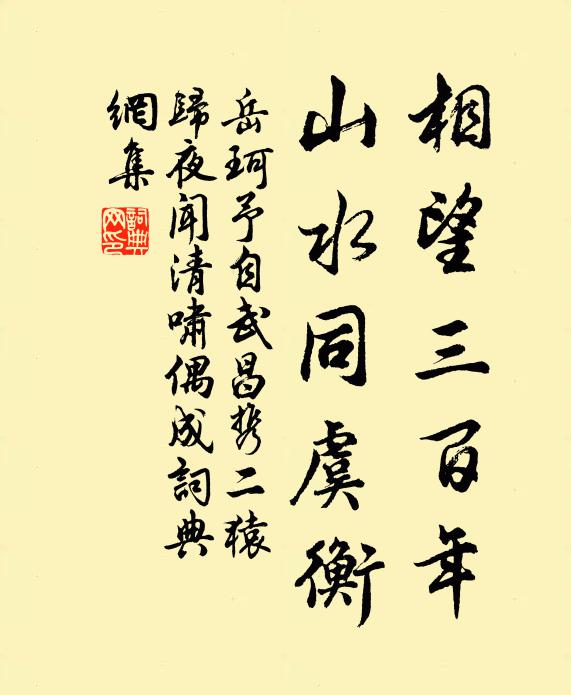 相望三百年
山水同虞衡
岳珂予自武昌携二猿
歸夜闻清嘯偶成詞典
網集
詞典网印